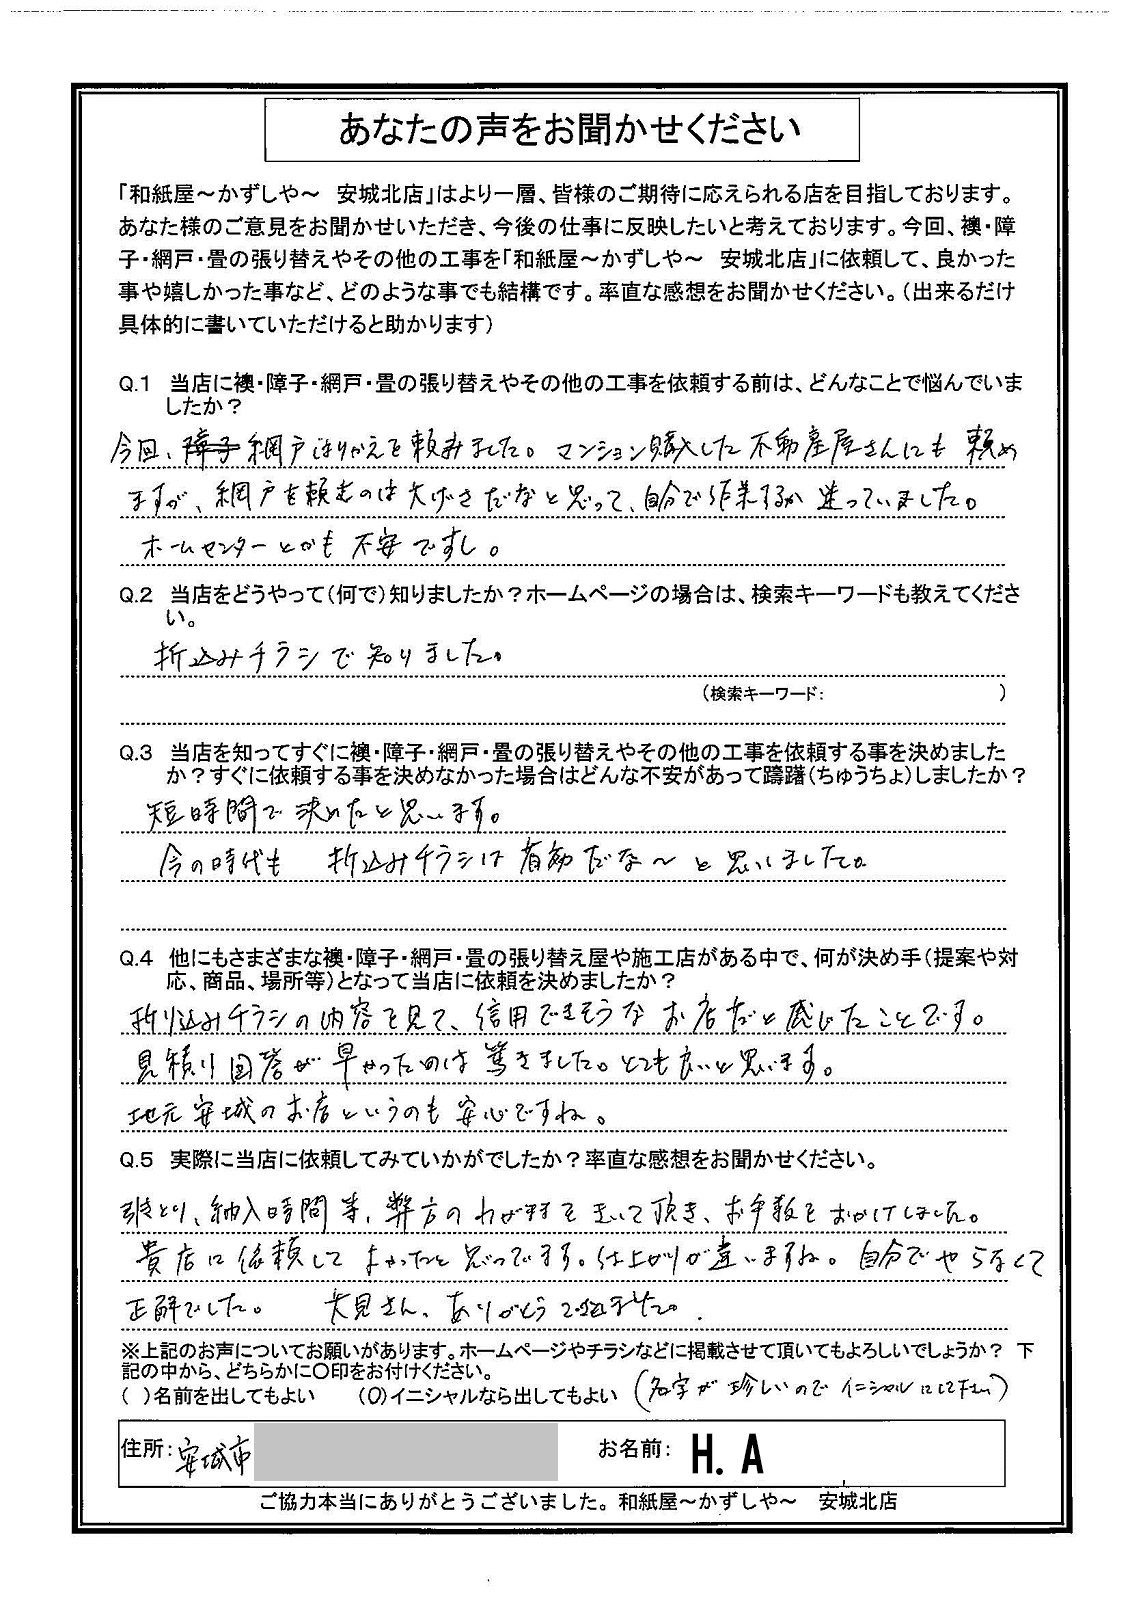 あなたの声をお聞かせください
「和紙屋～かずしや～　安城北店」はより一層、皆様のご期待に応えられる店を目指しております。
あなた様のご意見をお聞かせいただき、今後の仕事に反映したいと考えております。今回、襖・障
子・網戸・畳の張り替えやその他の工事を「和紙屋～かずしや～　安城北店」に依頼して、良かった
事や嬉しかった事など、どのような事でも結構です。率直な感想をお聞かせください。（出来るだけ
具体的に書いていただけると助かります）
Q.1　当店に襖・障子・網戸・畳の張り替えやその他の工事を依頼する前は、どんなことで悩んでいま
したか？
今回、障子網戸はりかえを頼みました。マンション購入した不動産屋さんにも頼め
ますが、網戸を頼むのは大げさだなと思って、自分で作業するか迷っていました。
ホームセンターとかも不安ですし。
Q.2　当店をどうやって（何で）知りましたか？ホームページの場合は、検索キーワードも教えてくださ
い。
折込みチラシで知りました。
（検索キーワード：　　　　　　　　　　）
Q.3　当店を知ってすぐに襖・障子・網戸・畳の張り替えやその他の工事を依頼する事を決めました
か？すぐに依頼する事を決めなかった場合はどんな不安があって躊躇（ちゅうちょ）しましたか？
短時間で決めたと思います。
今の時代も　折込みチラシは有効だな～と思いました。
Q.4　他にもさまざまな襖・障子・網戸・畳の張り替え屋や施工店がある中で、何が決め手（提案や対
応、商品、場所等）となって当店に依頼を決めましたか？
折り込みチラシの内容を見て、信用できそうなお店だと感じたことです。
見積り回答が早かったのは驚きました。とても良いと思います。
地元安城のお店というのも安心ですね。
Q.5　実際に当店に依頼してみていかがでしたか？率直な感想をお聞かせください。
引きとり、納入時間等、弊方のわがままをきいて頂き、お手数をおかけしました。
貴店に依頼してよかったと思ってます。仕上がりが違いますね。自分でやらなくて
正解でした。　大見さん、ありがとうございました。
※上記のお声についてお願いがあります。ホームページやチラシなどに掲載させて頂いてもよろしいでしょうか？　下
記の中から、どちらかに〇印をお付けください。
（　）名前を出してもよい　　（〇）イニシャルなら出してもよい （名字が珍しいのでイニシャルにして下さい）
住所：安城市　お名前：　H. A
ご協力本当にありがとうございました。和紙屋～かずしや～　安城北店